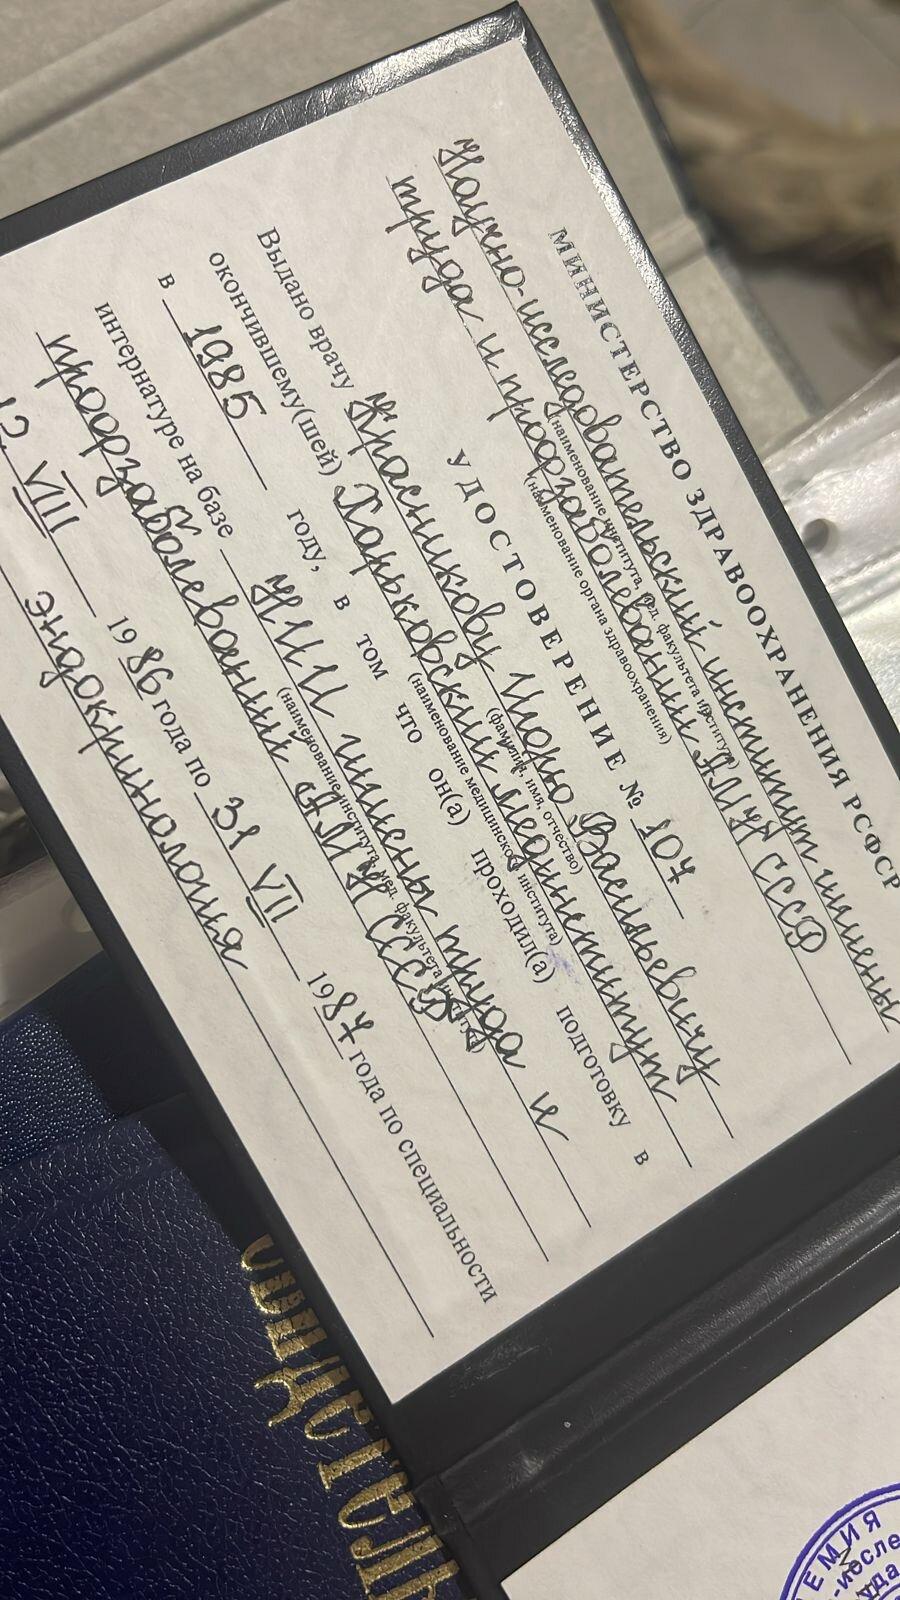 МИНИСТЕРСТВО ЗДРАВООХРАНЕНИЯ РСФСР
Научно-исследовательский институт гигиены
(наименование института, мед. факультета института)
труда и профзаболеваний АМН СССР
(наименование органа здравоохранения)
УДОСТОВЕРЕНИЕ № 104
Выдано врачу Красникову Игорю Васильевичу
(фамилия, имя, отчество)
окончившему(шей) Харьковский мединститут
(наименование медицинского института)
в 1985 году, в том что он(а) проходил(а) подготовку в
интернатуре на базе НИИ гигиены труда и
(наименование института, мед. факультета института)
профзаболеваний АМН СССР
с VIII 1986 года по 31 VII 1987 года по специальности
эндокринология
СВИДЕТЕЛЬ
ЕМИЯ
-иссле
уда